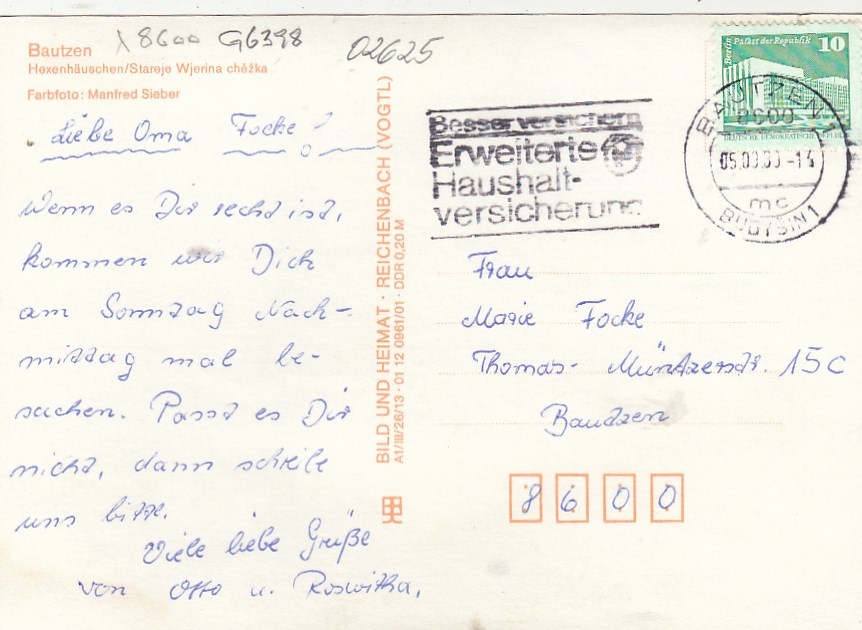 X8600 G6398
02625
Bautzen
Hexenhäuschen/Stareje Wjerina chěžka
Farbfoto: Manfred Sieber
Liebe Oma Focke!
Wenn es Dir recht ist,
kommen wir Dich
am Sonntag Nach-
mittag mal be-
suchen. Passt es Dir
nicht, dann schreibe
uns bitte.
Viele liebe Grüße
von Otto u. Roswitha.
BILD UND HEIMAT · REICHENBACH (VOGTL)
A1/III/26/13 · 01 12 0961/01 · DDR 0,20 M
Besser versichern
Erweiterte
Haushalt-
versicherung
Berlin Palast der Republik 10
DEUTSCHE DEMOKRATISCHE REPUBLIK
BAUTZEN 1
8600
-14
mc
BUDYŠIN 1
Frau
Marie Focke
Thomas-Müntzerstr. 15c
Bautzen
8600